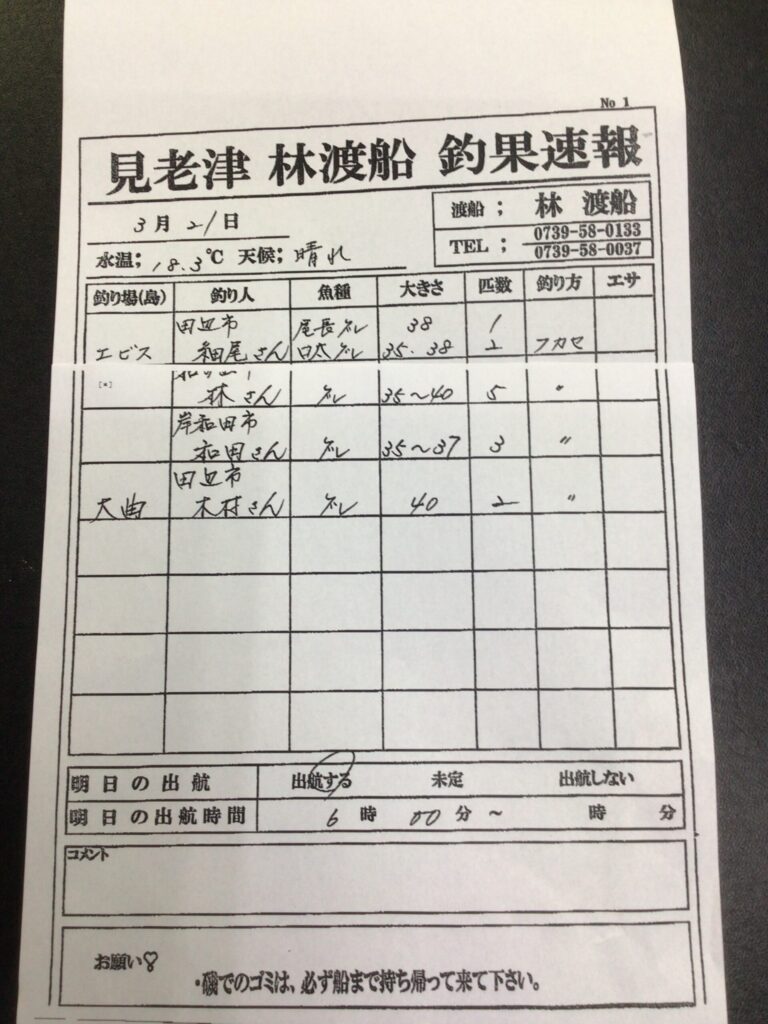 No 1
見老津 林渡船 釣果速報
3月21日
渡船; 林 渡船
水温; 18.3℃ 天候; 晴れ
TEL; 0739-58-0133
0739-58-0037
釣り場(島) 釣り人 魚種 大きさ 匹数 釣り方 エサ
田辺市 尾長グレ 38 1
エビス 細尾さん 口太グレ 35.38 2 フカセ
林さん グレ 35〜40 5 〃
岸和田市
和田さん グレ 35〜37 3 〃
田辺市
大曲 木村さん グレ 40 2 〃
明日の出航 出航する 未定 出航しない
明日の出航時間 6時00分〜 時 分
コメント
お願い♡
・磯でのゴミは、必ず船まで持ち帰って来て下さい。